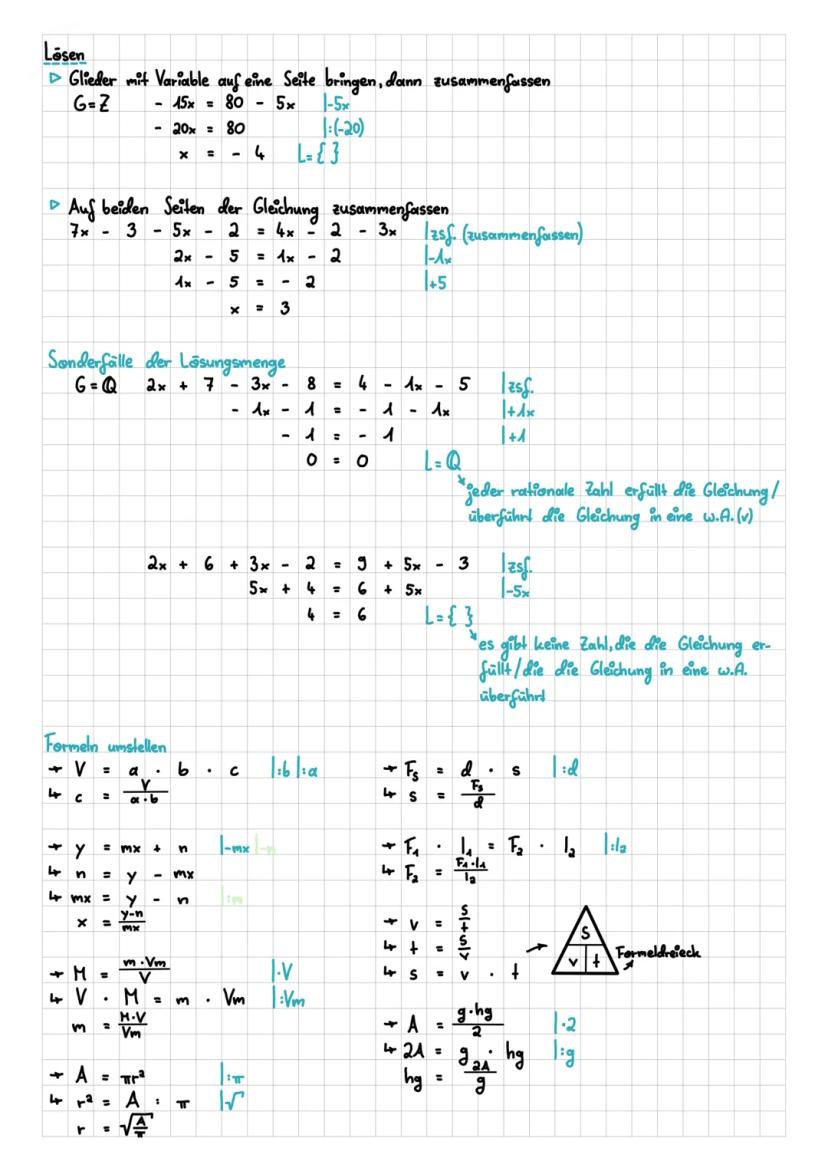 Lösen
▷ Glieder mit Variable auf eine Seite bringen, dann zusammenfassen
G=Z - 15x = 80 - 5x |-5x
- 20x = 80 |:(-20)
x = - 4 L={ }
▷ Auf beiden Seiten der Gleichung zusammenfassen
7x - 3 - 5x - 2 = 4x - 2 - 3x |zsf. (zusammenfassen)
2x - 5 = 1x - 2 |-1x
1x - 5 = - 2 |+5
x = 3
Sonderfälle der Lösungsmenge
G=ℚ 2x + 7 - 3x - 8 = 4 - 1x - 5 |zsf.
- 1x - 1 = - 1 - 1x |+1x
- 1 = - 1 |+1
0 = 0 L=ℚ
jeder rationale Zahl erfüllt die Gleichung/
überführt die Gleichung in eine w.A.(v)
2x + 6 + 3x - 2 = 9 + 5x - 3 |zsf.
5x + 4 = 6 + 5x |-5x
4 = 6 L={ }
es gibt keine Zahl, die die Gleichung er-
füllt/die die Gleichung in eine w.A.
überführt
Formeln umstellen
→ V = a · b · c |:b |:a
↳ c = V/(a·b)
→ y = mx + n |-mx |-n
↳ n = y - mx
↳ mx = y - n |:m
x = (y-n)/mx
→ M = (m·Vm)/V |·V
↳ V · M = m · Vm |:Vm
m = (M·V)/Vm
→ A = πr² |:π
↳ r² = A : π |√
r = √(A/π)
→ Fs = d · s |:d
↳ s = Fs/d
→ F₁ · l₁ = F₂ · l₂ |:l₂
↳ F₂ = (F₁·l₁)/l₂
→ v = s/t
↳ t = s/v
↳ s = v · t
→ S
v t
Formeldreieck
→ A = (g·hg)/2 |·2
↳ 2A = g · hg |:g
hg = 2A/g